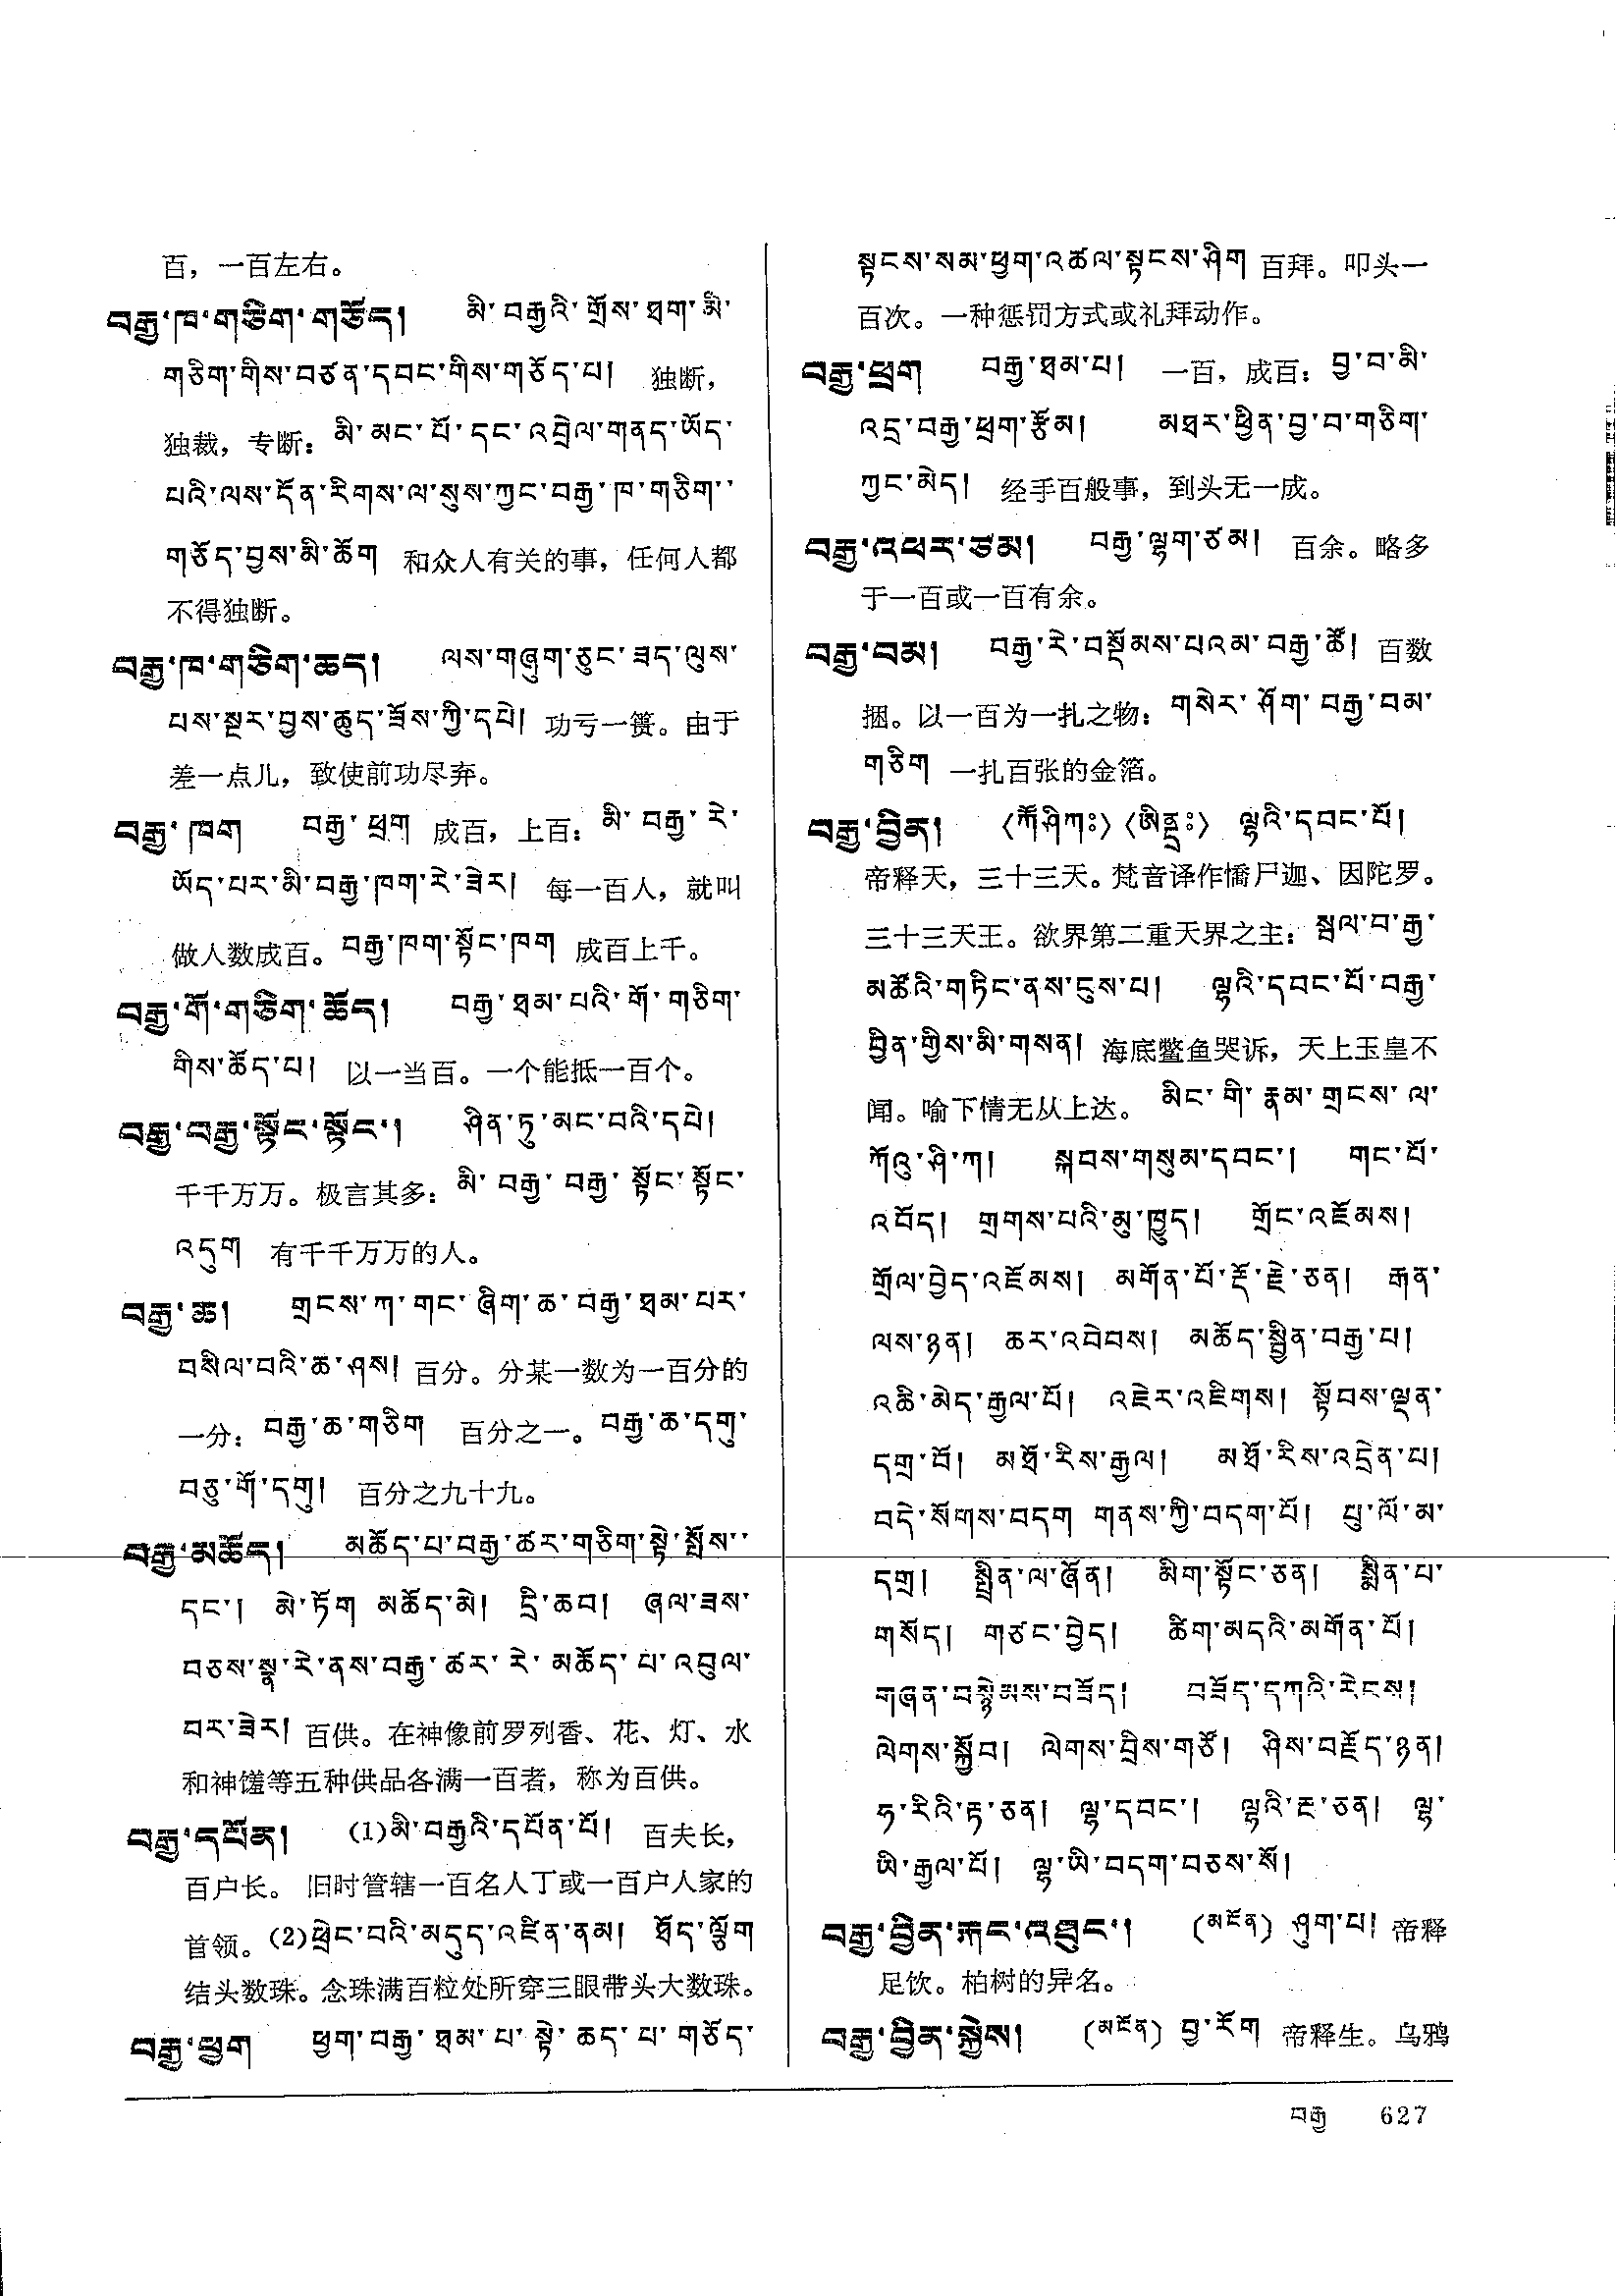 百，一百左右。
བརྒྱ་ཁ་གཅིག་གཅོད། མི་བརྒྱའི་གྲོས་ཐག་མི་
གཅིག་གིས་བཙན་དབང་གིས་གཅོད་པ། 独断，
独裁，专断：མི་མང་པོ་དང་འབྲེལ་གནད་ཡོད་
པའི་ལས་དོན་རིགས་ལ་སུས་ཀྱང་བརྒྱ་ཁ་གཅིག་་
གཅོད་བྱས་མི་ཆོག 和众人有关的事，任何人都
不得独断。
བརྒྱ་ཁ་གཅིག་ཆད། ལས་གཞུག་ཅུང་ཟད་ལུས་
པས་སྔར་བྱས་ཆུད་ཟོས་ཀྱི་དཔེ། 功亏一篑。由于
差一点儿，致使前功尽弃。
བརྒྱ་ཁག བརྒྱ་ཕྲག 成百，上百：མི་བརྒྱ་རེ་
ཡོད་པར་མི་བརྒྱ་ཁག་རེ་ཟེར། 每一百人，就叫
做人数成百。བརྒྱ་ཁག་སྟོང་ཁག 成百上千。
བརྒྱ་གོ་གཅིག་ཆོད། བརྒྱ་ཐམ་པའི་གོ་གཅིག་
གིས་ཆོད་པ། 以一当百。一个能抵一百个。
བརྒྱ་བརྒྱ་སྟོང་སྟོང་། ཤིན་ཏུ་མང་བའི་དཔེ།
千千万万。极言其多：མི་བརྒྱ་བརྒྱ་སྟོང་སྟོང་
འདུག 有千千万万的人。
བརྒྱ་ཆ། གྲངས་ཀ་གང་ཞིག་ཆ་བརྒྱ་ཐམ་པར་
བསིལ་བའི་ཆ་ཤས། 百分。分某一数为一百分的
一分：བརྒྱ་ཆ་གཅིག 百分之一。བརྒྱ་ཆ་དགུ་
བཅུ་གོ་དགུ། 百分之九十九。
བརྒྱ་མཆོད། མཆོད་པ་བརྒྱ་ཚར་གཅིག་སྟེ་སྤོས་་
དང་། མེ་ཏོག མཆོད་མེ། དྲི་ཆབ། ཞལ་ཟས་
བཅས་སྣ་རེ་ནས་བརྒྱ་ཚར་རེ་མཆོད་པ་འབུལ་
བར་ཟེར། 百供。在神像前罗列香、花、灯、水
和神馐等五种供品各满一百者，称为百供。
བརྒྱ་དཔོན། (1)མི་བརྒྱའི་དཔོན་པོ། 百夫长，
百户长。 旧时管辖一百名人丁或一百户人家的
首领。(2)ཕྲེང་བའི་མདུད་འཛིན་ནམ། ཐོད་ལྕོག
结头数珠。念珠满百粒处所穿三眼带头大数珠。
བརྒྱ་ཕྱག ཕྱག་བརྒྱ་ཐམ་པ་སྟེ་ཆད་པ་གཅོད་
སྟངས་སམ་ཕྱག་འཚལ་སྟངས་ཤིག 百拜。叩头一
百次。一种惩罚方式或礼拜动作。
བརྒྱ་ཕྲག བརྒྱ་ཐམ་པ། 一百，成百：བྱ་བ་མི་
འདྲ་བརྒྱ་ཕྲག་རྩོམ། མཐར་ཕྱིན་བྱ་བ་གཅིག་
ཀྱང་མེད། 经手百般事，到头无一成。
བརྒྱ་འཕར་ཙམ། བརྒྱ་ལྷག་ཙམ། 百余。略多
于一百或一百有余。
བརྒྱ་བམ། བརྒྱ་རེ་བསྡོམས་པའམ་བརྒྱ་ཚོ། 百数
捆。以一百为一扎之物：གསེར་ཤོག་བརྒྱ་བམ་
གཅིག 一扎百张的金箔。
བརྒྱ་བྱིན། 〈ཀོ་ཤིཀཿ〉〈ཨིནྡྲཿ〉 ལྷའི་དབང་པོ།
帝释天，三十三天。梵音译作憍尸迦、因陀罗。
三十三天王。欲界第二重天界之主：སྦལ་བ་རྒྱ་
མཚོའི་གཏིང་ནས་ངུས་པ། ལྷའི་དབང་པོ་བརྒྱ་
བྱིན་གྱིས་མི་གསན། 海底鳖鱼哭诉，天上玉皇不
闻。喻下情无从上达。 མིང་གི་རྣམ་གྲངས་ལ་
ཀོའུ་ཤི་ཀ། སྐབས་གསུམ་དབང་། གང་པོ་
འབོད། གྲགས་པའི་མུ་ཁྱུད། གྲོང་འཇོམས།
གྲོལ་བྱེད་འཇོམས། མགོན་པོ་རྡོ་རྗེ་ཅན། རྒན་
ལས་ཉན། ཆར་འབེབས། མཆོད་སྦྱིན་བརྒྱ་པ།
འཆི་མེད་རྒྱལ་པོ། འཇེར་འཇིགས། སྟོབས་ལྡན་
དགྲ་བོ། མཐོ་རིས་རྒྱལ། མཐོ་རིས་འདྲེན་པ།
བདེ་སོགས་བདག གནས་ཀྱི་བདག་པོ། པུ་ལོ་མ་
དགྲ། སྤྲིན་ལ་ཞོན། མིག་སྟོང་ཅན། སྨིན་པ་
གསོད། གཙང་བྱེད། ཚིག་མདའི་མགོན་པོ།
གཞན་བསྙེམས་བཟོད། བཟོད་དཀའི་རེངས།
ལེགས་སྐྱོབ། ལེགས་བྲིས་གཙོ། ཤིས་བརྗོད་ཉན།
ཧ་རིའི་རྟ་ཅན། ལྷ་དབང་། ལྷའི་རྔ་ཅན། ལྷ་
ཡི་རྒྱལ་པོ། ལྷ་ཡི་བདག་བཅས་སོ།
བརྒྱ་བྱིན་རྐང་འཐུང་། (མངོན) ཤུག་པ། 帝释
足饮。柏树的异名。
བརྒྱ་བྱིན་སྐྱེས། (མངོན) བྱ་རོག 帝释生。乌鸦
བརྒྱ 627